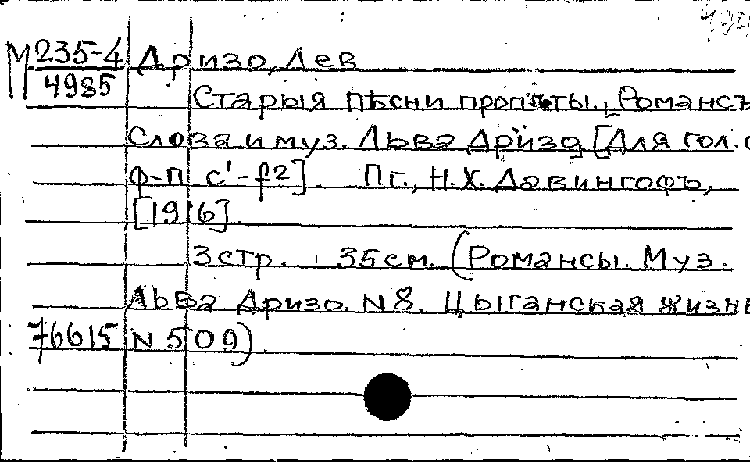 М 235-4 Дризо, Лев
4985
Старыя пѣсни пропѣты. Романсъ
Слова и муз. Льва Дризо [Для гол. с
ф-п. c'-f2]. Пг., Н.Х. Давингофъ,
[1916].
3 стр. 35 см. (Романсы. Муз.
Льва Дризо. N 8. Цыганская жизнь
76615 N 500)